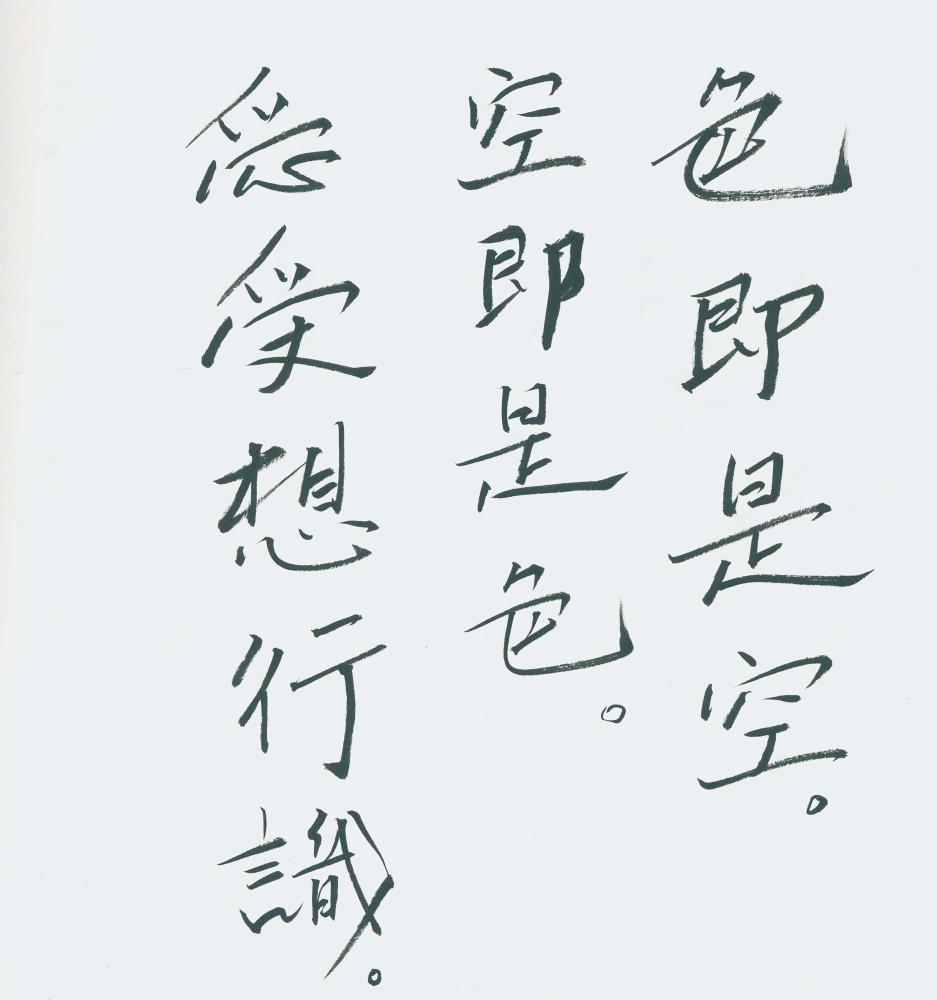 色即是空。
空即是色。
受想行識。